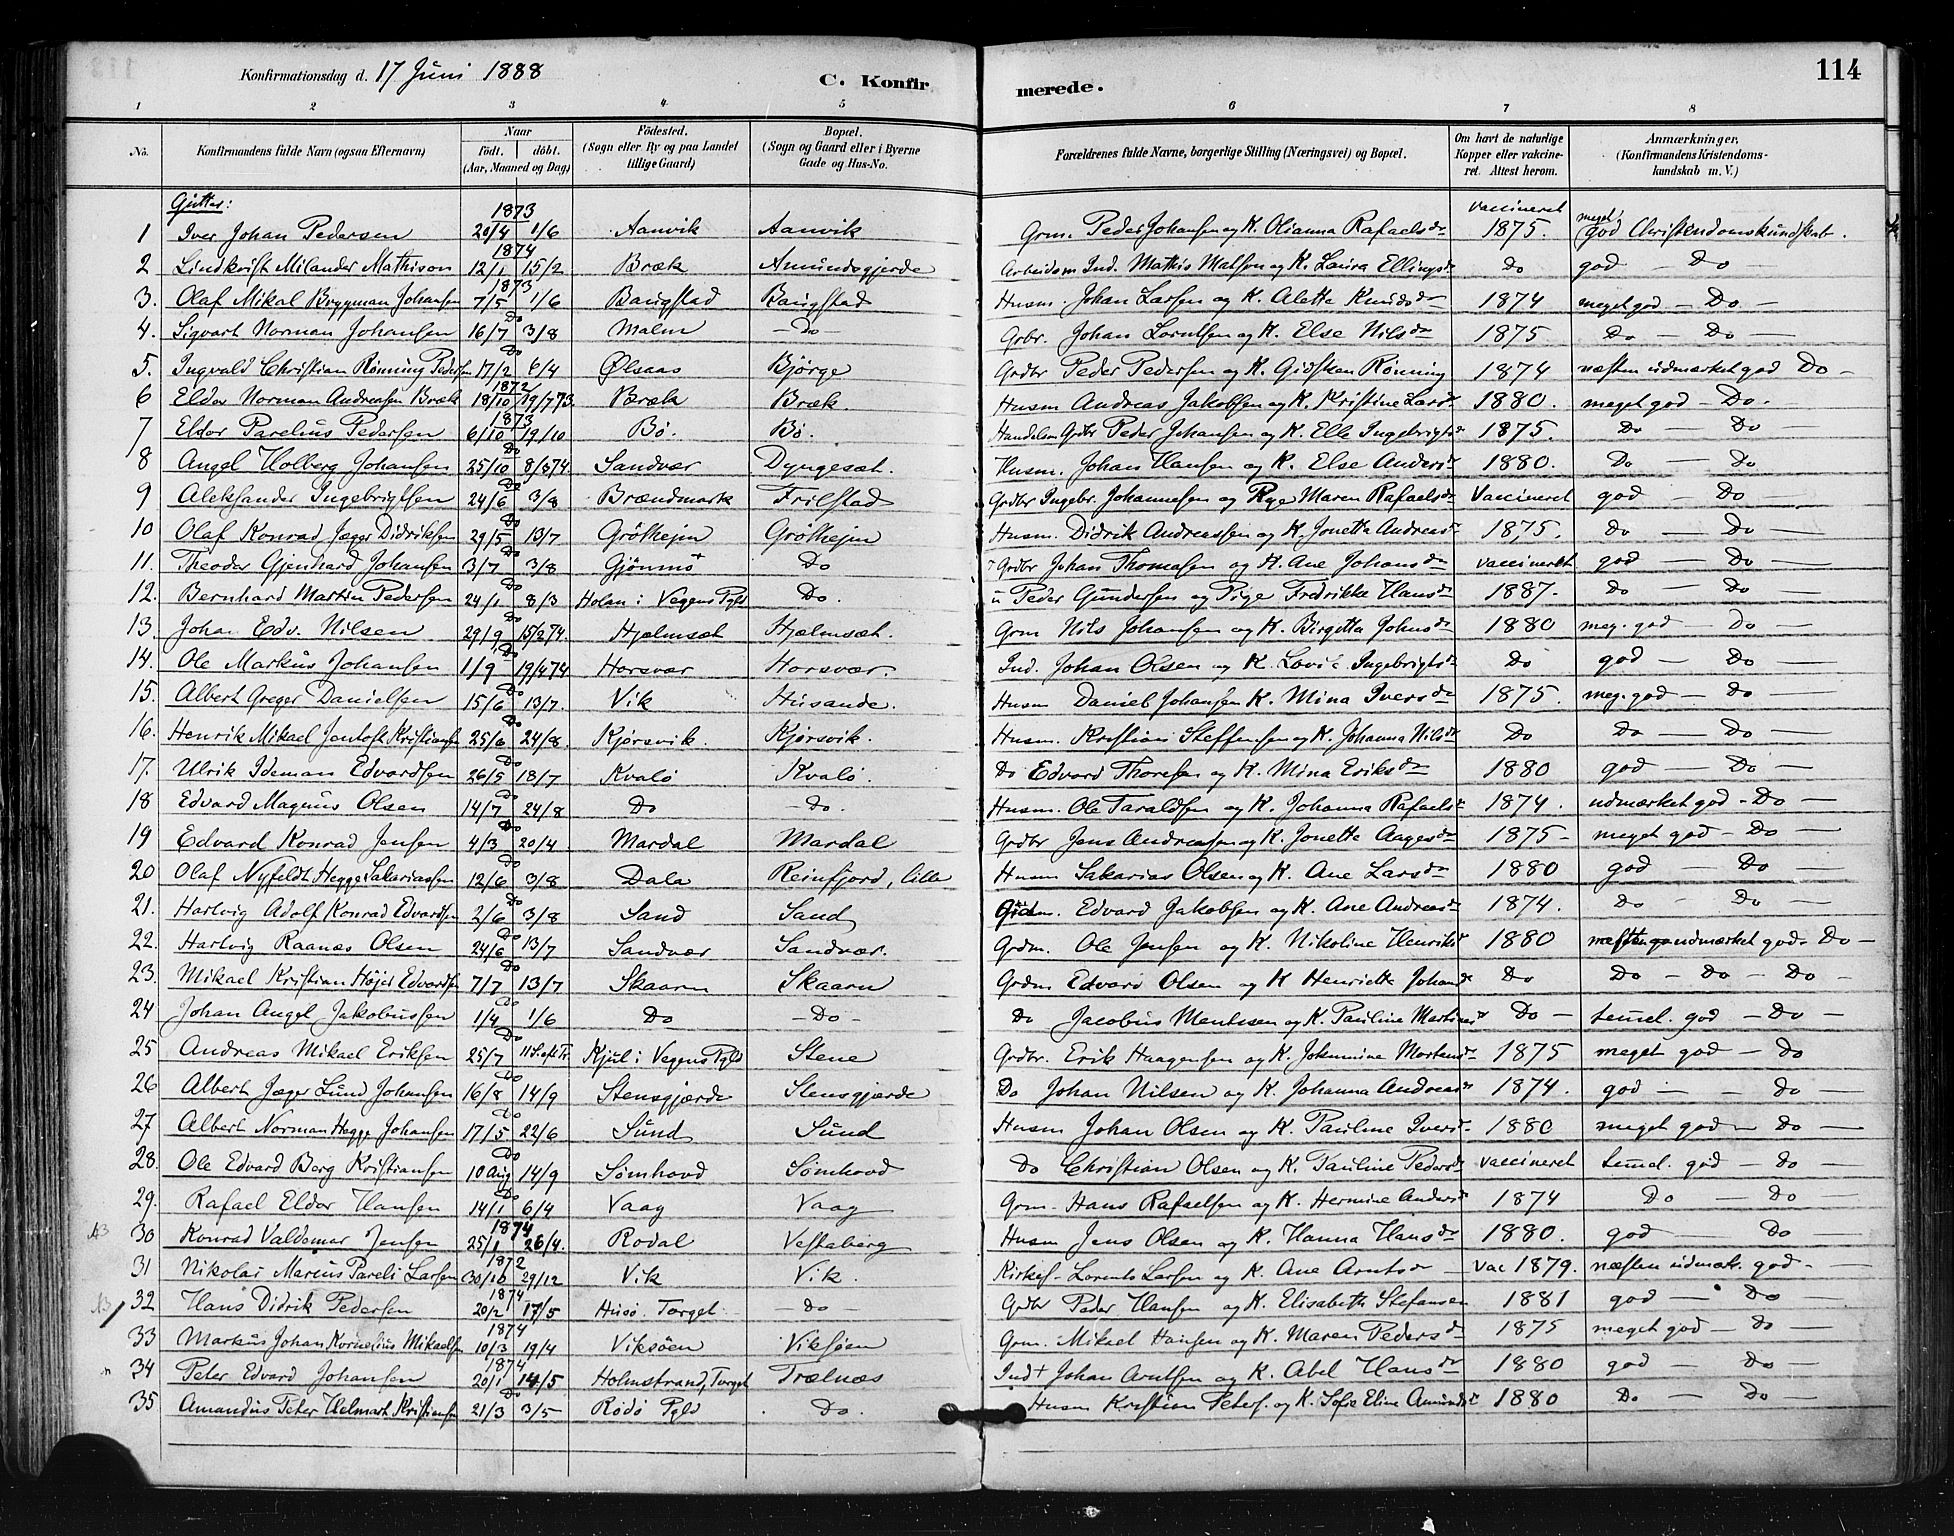 Konfirmationsdag d. 17 Juni 1888
C. Konfirmerede.
114
1 2 3 4 5 6 7 8
No. Konfirmandens fulde Navn (ogsaa Efternavn) Naar født. døbt. (Aar, Maaned og Dag) Födested. (Sogn eller By og paa Landet tillige Gaard) Bopæl. (Sogn og Gaard eller i Byerne Gade og Hus-No. Forældrenes fulde Navne, borgerlige Stilling (Næringsvei) og Bopæl. Om havt de naturlige Kopper eller vaccineret. Attest herom. Anmærkninger. (Konfirmandens Kristendomskundskab m. V.)
Gutter:
1873
1 Iver Johan Pedersen 20/4 1/6 Aanvik Aanvik Grm. Peder Johansen og K. Olianna Rafaelsdr vaccineret 1875. meget god Christendomskundskab.
1874
2 Lindkvist Milander Mathison 12/1 15/2 Bræk Amundsgjerde Arbeidsm Ind. Mathis Matsen og K. Laura Ellingsdr Do god — Do
1873
3. Olaf Mikal Bryggman Johansen 7/5 1/6 Baugstad Baugstad Husm. Johan Larsen og K. Aletta Knudsdr 1874 meget god — Do —
Do
4. Sigvart Norman Johansen 16/7 3/8 Malm — Do — Grbr. Johan Lorntsen og K. Else Nilsdr 1875 Do — Do
Do
5. Ingvald Christian Rønning Pedersen 17/2 6/4 Ølsaas Bjørge Grdbr Peder Pedersen og K. Gidskan Rönning 1874 næsten udmærket god Do —
1872
6 Eldor Norman Andreasen Bræk 18/10 19/7 73. Bræk Bræk. Husm Andreas Jakobsen og K. Kristine Larsdr 1880. meget god — Do.
1873
7 Eldor Parelius Pedersen 6/10 19/10 Bø. Bø. Handelsm Grdbr Peder Johansen og K. Elle Ingebrigtsdr 1875. Do — Do
Do
8 Angel Holberg Johansen 25/10 8/3 74. Sandvær Dyngesæt. Husm. Johan Hansen og K. Else Andersdr 1880. Do — Do
Do
9 Aleksander Ingebrigtsen 24/6 3/8 Brændmark Trilstad Grdbr Ingebr. Johannesen og Pige Maren Rafaelsdr Vaccineret god — Do —
Do
10 Olaf Konrad Jæger Didriksen 29/5 13/7 Grölhejm Grölhejm Husm. Didrik Andreassen og K. Jonetta Andreasdr 1875. Do — Do —
Do
11. Theodor Gjenhard Johansen 3/7 3/8 Gjönmö Do Grdbr Johan Thomasen og K. Ane Johansdr vaccineret god — Do —
Do
12. Bernhard Martin Pedersen 24/1 8/3 Holan i Vegens Pgld Do. u Peder Gundersen og Pige Fredrikke Hansdr 1887. Do — Do —
Do
13. Johan Edv. Nilsen 29/9 15/2 74. Hjelmsæt Hjælmsæt. Grm Nils Johansen og K. Birgitta Johnsdr 1880 meg. god — Do —
Do
14. Ole Markus Johansen 1/9 19/4 74 Horsvær Horsvær. Ind. Johan Olsen og K. Lovi Ingebrigtsdr Do god — Do —
Do
15. Albert Greger Danielsen 15/6 13/7. Vik Husande. Husm Daniel Johansen K. Mina Iversdr 1875. meg. god — Do —
Do
16. Henrik Mikael Jentoft Kristiansen 25/6 24/8. Kjörsvik. Kjörsvik. Husm. Kristian Steffensen og K. Johanna Nilsdr Do Do — Do —
Do
17. Ulrik Ideman Edvardsen 26/5 18/7 Kvalö Kvalö. Do Edvard Thoresen og K. Mina Eriksdr 1880 god — Do —
Do
18 Edvard Magnus Olsen 14/7 24/8 Do — Do. Husm. Ole Taraldsen og K. Johanna Rafaelsdr 1874. udmærket god - Do —
Do
19 Edvard Konrad Jensen 4/3 20/4 Mardal Mardal Grdbr Jens Andreasen og K. Jonette Aagesdr 1875 — meget god — Do —
Do
20 Olaf Nyfeldt Hegge Sakariassen 12/6 3/8 Dala Reinfjord, lille Husm Sakarias Olsen og K. Ane Larsdr 1880 god — Do —
Do
21. Hartvig Adolf Konrad Edvardsen 2/6 3/8 Sand Sand Grdm. Edvard Jakobsen og K. Ane Andreasdr 1874. Do — Do —
Do
22. Hartvig Raanæs Olsen 24/6 13/7 Sandvær Sandvær. Grdm. Ole Jensen og K. Nikoline Henriksdr 1880 næsten udmærket god. Do —
Do
23. Mikael Kristian Højer Edvardsen 7/7 13/7 Skaarn Skaarn Grdm Edvard Olsen og K Henriette Johansdr Do Do — Do — Do —
Do
24 Johan Angel Jakobussen 1/4 1/6 Do — Do — Do Jacobus Mentzsen og K. Pauline Martinesdr Do — temel. god — Do —
Do
25 Andreas Mikael Eriksen 25/7 11 S. eft Tr. Kjul i Vegens Pgld Stene Grdbr. Erik Haagensen og K. Johannine Mortensdr 1875 meget god — Do
Do
26 Albert Jæger Lund Johansen 16/8 14/9 Stensgjærde Stensgjærde Do Johan Nilsen og K. Johanna Andreasdr 1874. god — Do —
Do
27 Albert Norman Hegge Johansen 17/5 22/6 Sund Sund Husm Johan Olsen og K. Pauline Iversdr 1880 meget god — Do —
Do
28. Ole Edvard Berg Kristiansen 10 Aug 14/9 Sömhovd Sömhovd Do Christian Olsen og K. Pauline Pedersdr vaccineret temel. god — Do —
Do
29. Rafael Eldor Hansen 14/1 6/4 Vaag Vaag Grm. Hans Rafaelsen og K. Hermine Andersdr 1874 Do — Do
1874
30 Konrad Valdemar Jensen 25/1 26/4. Rodal Vestaberg Husm Jens Olsen og K. Hanna Hansdr 1880. god — Do —
1872
31 Nikolai Marius Pareli Larsen 30/10 29/12 Vik Vik. Kirkes. Lorents Larsen og K. Ane Arntsdr vac 1879. næsten udmærk. god —
1874
32 Hans Didrik Pedersen 20/2 17/5 Husö. Torget — Do Grdbr Peder Hansen og K. Elisabeth Stefansen 1881 god — Do —
1874
33 Markus Johan Kornelius Mikaelsen 10/3 19/4 Viksöen Viksöen Grm. Mikael Hansen og K. Maren Pedersdr 1875 meget god — Do —
1874
34 Peter Edvard Johansen 20/1 14/5 Holmstrand, Torget Trælnæs Ind + Johan Arntsen og K. Abel Hansdr 1880 god — Do —
Do
35 Amandus Peter Helmart Kristiansen 21/3 3/5 Rödö Pgld Do. Husm Kristian Peters. og K. Sofie Eline Amundsdr 1880 Do — Do —